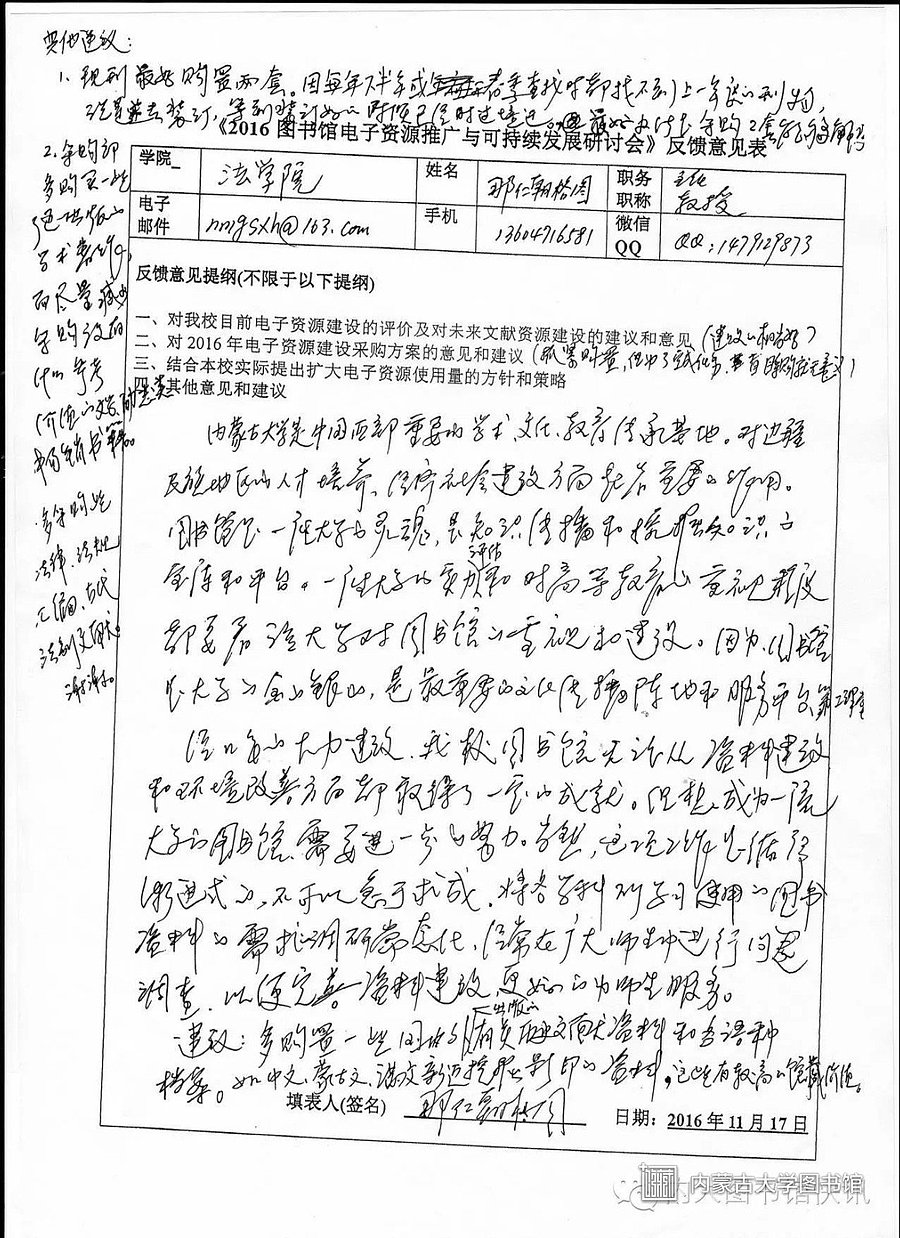 其他建议:
1. 现刊最好购置两套。因每年下半年或春季查找时都找不到上一年度的刊物,
《2016图书馆电子资源推广与可持续发展研讨会》反馈意见表
学院 法学院 姓名 那仁朝格图 职务 主任
职称 教授
电子邮件 nmgsxh@163.com 手机 13604716581 微信
QQ QQ:1479129873
2. 采购部
多购买一些
学术著作,
而尽量减少
采购没有
什么参考
价值的
畅销书等。
多采购些
法律、法史
古代
法制文献。
谢谢。
反馈意见提纲(不限于以下提纲)
一、对我校目前电子资源建设的评价及对未来文献资源建设的建议和意见
二、对2016年电子资源建设采购方案的意见和建议
三、结合本校实际提出扩大电子资源使用量的方针和策略
四、其他意见和建议
内蒙古大学是中国西部重要的学术、文化、教育传承基地。对边疆
民族地区的人才培养、经济社会建设方面起着重要的作用。
图书馆是一座大学的灵魂,是知识传播和挖掘知识的
宝库和平台。评估一座大学的实力和对高等教育的重视程度
都要看该大学对图书馆的重视和建设。因为,图书馆
是大学的金山银山,是最重要的文化传播阵地和服务平台、第二课堂
经几年的大力建设,我校图书馆无论从资料建设
和环境改善方面都取得了一定的成就。但想成为一流
大学的图书馆,需要进一步的努力。当然,这项工作是循序
渐进式的,不可以急于求成,将各学科所学习使用的图书
资料的需求调研常态化,经常在广大师生中进行问卷
调查,以便完善资料建设,更好的为师生服务。
建议:多购置一些国内外出版的有关历史文献资料和各语种
档案。如中文、蒙古文、满文新近挖掘影印的资料,这些有较高的馆藏价值。
填表人(签名) 那仁朝格图 日期:2016年11月17日
内蒙古大学图书馆